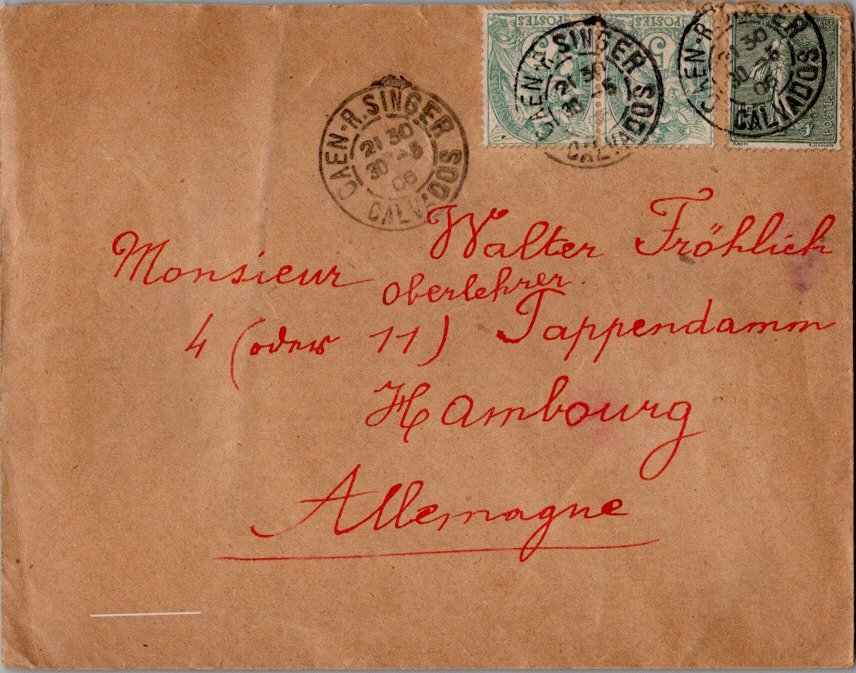 POSTES POSTES
5
CAEN-R.SINGER
21 30
30 -5
06
CALVADOS
CAEN-R.SINGER
21 30
30 -5
CALVADOS
CAEN-R. SINGER
21 30
30 -5
06
CALVADOS
Walter Fröhlich
Monsieur
Oberlehrer.
4 (oder 11) Tappendamm
Hambourg
Allemagne